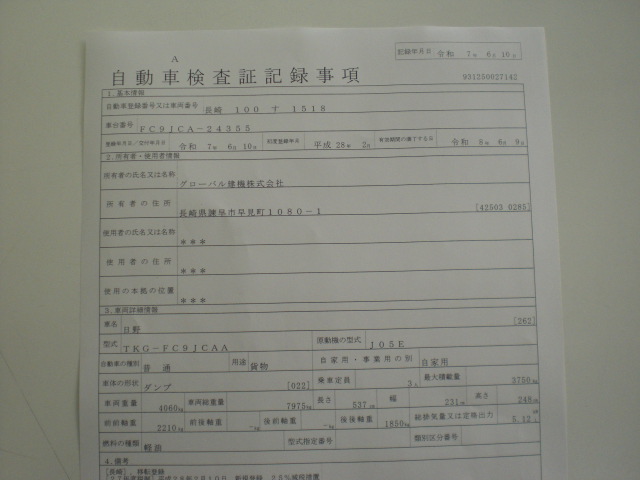 記録年月日 令和 7年 6月10日
A
自動車検査証記録事項
931250027142
1.基本情報
自動車登録番号又は車両番号 長崎 100 す 1518
車台番号 FC9JCA-24355
登録年月日/交付年月日 令和 7年 6月10日 初度登録年月 平成28年 2月 有効期間の満了する日 令和 8年 6月 9日
2.所有者・使用者情報
所有者の氏名又は名称 グローバル建機株式会社
所有者の住所 長崎県諫早市早見町1080-1 [42503 0285]
使用者の氏名又は名称 ***
使用者の住所 ***
使用の本拠の位置 ***
3.車両詳細情報
車名 日野 [262]
型式 TKG-FC9JCAA 原動機の型式 J05E
自動車の種別 普通 用途 貨物 自家用・事業用の別 自家用
車体の形状 ダンプ [022] 乗車定員 3人 最大積載量 3750kg
車両重量 4060kg 車両総重量 7975kg 長さ 537cm 幅 231cm 高さ 248cm
前前軸重 2210kg 前後軸重 -kg 後前軸重 -kg 後後軸重 1850kg 総排気量又は定格出力 5.12L
燃料の種類 軽油 型式指定番号 類別区分番号
4.備考
[長崎],移転登録